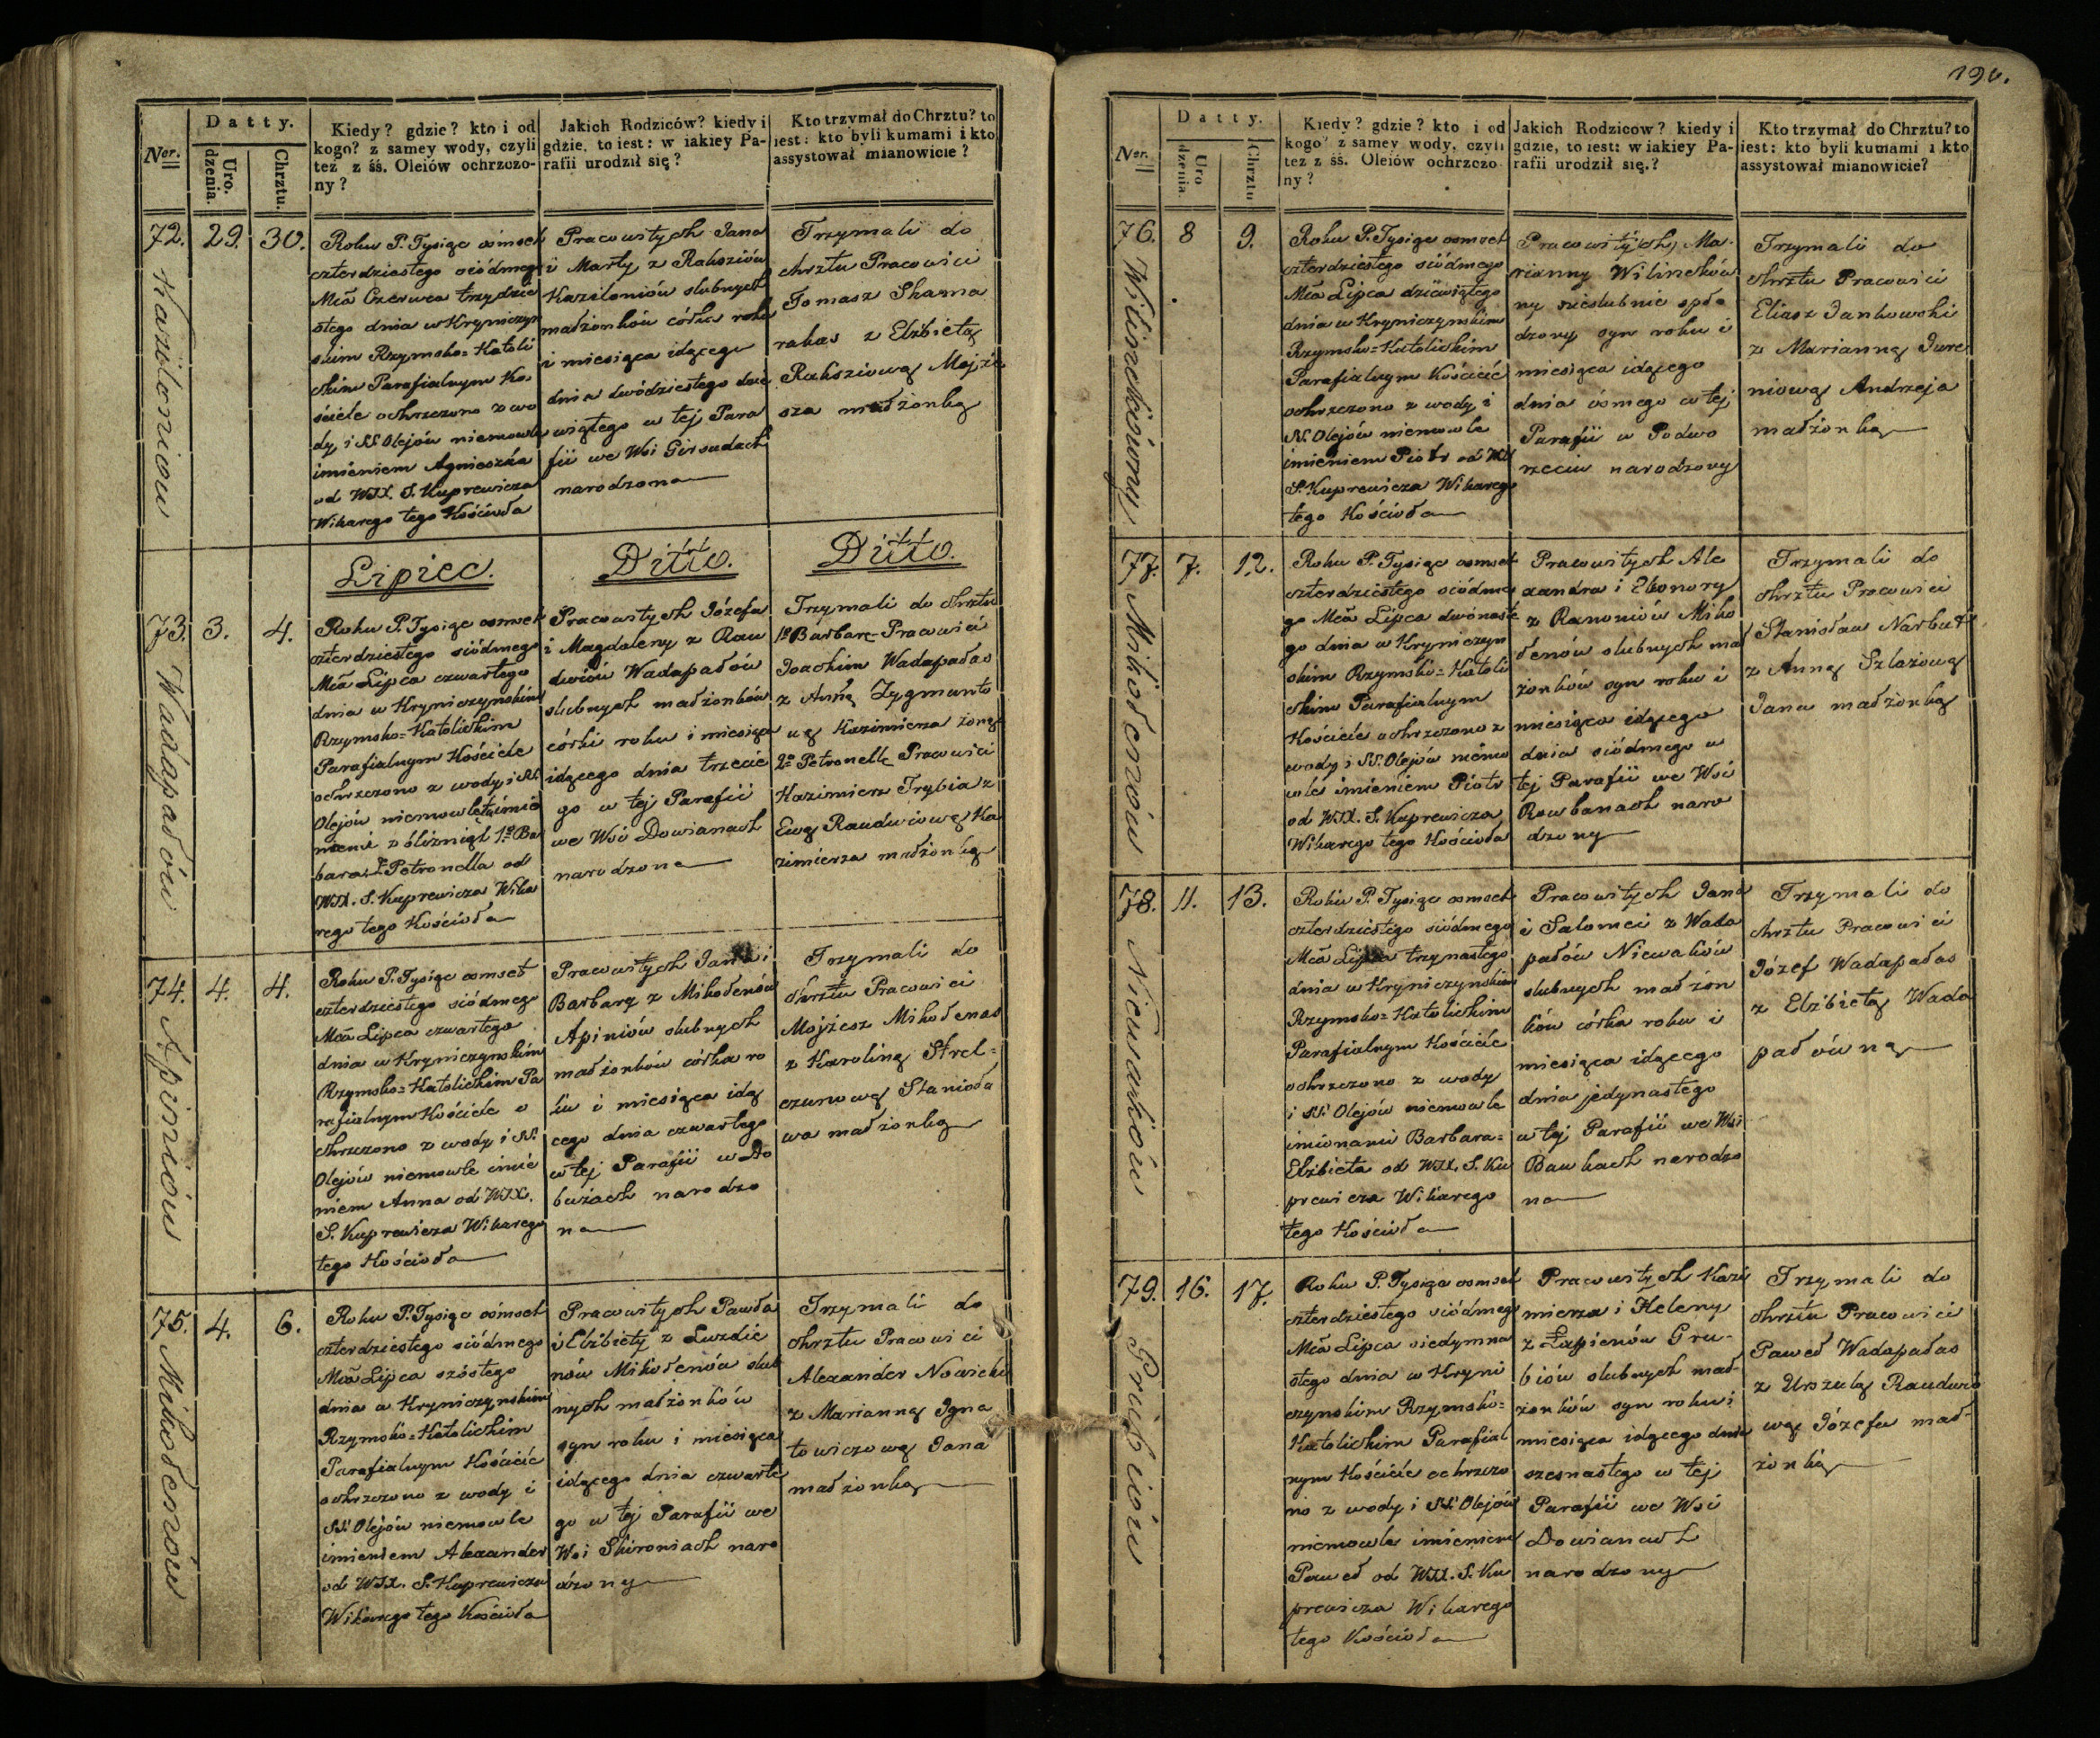 Ner.
Datty.
Uro.
dzenia.
Chrztu.
Kiedy? gdzie? kto i od
kogo? z samey wody, czyli
też z śś. Oleiów ochrzczo-
ny?
Jakich Rodziców? kiedy i
gdzie, to iest: w iakiey Pa-
rafii urodził się?
Kto trzymał do Chrztu? to
iest: kto byli kumami i kto
assystował mianowicie?
72. 29. 30.
Kaziloniow
Roku P. Tysiąc ośmset
czterdziestego siódmego
Mca Czerwca trzydzie
stego dnia w Krynieczyn
skim Rzymsko=Katoli
ckim Parafialnym Ko-
ściele ochrzczono z wo
dy i SS. Olejów niemowle
imieniem Agnieszka
od WJX. S. Kuprewicza
Wikarego tego Kościoła
Pracowitych Jana
i Marty z Rakszów
Kaziloniów slubnych
małżonków córka roku
i miesiąca idącego
dnia dwódziestego dzie
wiątego w tej Para
fii we Wsi Girsudach
narodzona
Trzymali do
chrztu Pracowici
Tomasz Skama
rakas z Elżbietą
Rakszową Mojże
sza małżonką
Lipiec.
Ditto.
Ditto.
73. 3. 4.
Wadapałów
Roku P. Tysiąc osmset
czterdziestego siódmego
Mca Lipca czwartego
dnia w Krynieczynskim
Rzymsko=Katolickim
Parafialnym Kościele
ochrzczono z wody i SS.
Olejów niemowlęta imio
nami z bliźniąt 1º Bar
bara 2º Petronella od
WJX. S. Kuprewicza Wika
rego tego Kościoła
Pracowitych Józefa
i Magdaleny z Rau
dwiów Wadapałów
slubnych małżonków
córki roku i miesiąca
idącego dnia trzecie
go w tej Parafii
we Wsi Dowianach
narodzone
Trzymali do chrztu
1º Barbarę Pracowici
Joachim Wadapałas
z Anną Zygmunto
wą Kazimierza żoną
2º Petronellę Pracowici
Kazimierz Trybia z
Ewą Raudwiową Ka
zimierza małżonką
74. 4. 4.
Apiniów
Roku P. Tysiąc osmset
czterdziestego siódmego
Mca Lipca czwartego
dnia w Krynieczynskim
Rzymsko=Katolickim Pa
rafialnym Kościele o
chrzczono z wody i SS.
Olejów niemowle imie
niem Anna od WJX.
S. Kuprewicza Wikarego
tego Kościoła
Pracowitych Jana i
Barbary z Mikołenów
Apiniów slubnych
małżonków córka ro
ku i miesiąca idą
cego dnia czwartego
w tej Parafii w Do
bużach narodzo
na
Trzymali do
chrztu Pracowici
Mojżesz Mikołenas
z Karoliną Strel=
czunową Stanisła
wa małżonką
75. 4. 6.
Mikołenów
Roku P. Tysiąc ośmset
czterdziestego siódmego
Mca Lipca szóstego
dnia w Krynieczynskim
Rzymsko=Katolickim
Parafialnym Kościele
ochrzczono z wody i
SS. Olejów niemowle
imieniem Alexander
od WJX. S. Kuprewicza
Wikarego tego Kościoła
Pracowitych Pawła
i Elżbiety z Luzdie
nów Mikołenów slub
nych małżonków
syn roku i miesiąca
idącego dnia czwarte
go w tej Parafii we
Wsi Skironiach naro
dzony
Trzymali do
chrztu Pracowici
Alexander Nowicki
z Marianną Igna
towiczową Jana
małżonką
196.
Ner.
Datty.
Uro
dzenia.
Chrztu
Kiedy? gdzie? kto i od
kogo? z samey wody, czyli
też z śś. Oleiów ochrzczo
ny?
Jakich Rodziców? kiedy i
gdzie, to iest: w iakiey Pa-
rafii urodził się.?
Kto trzymał do Chrztu? to
iest: kto byli kumami i kto
assystował mianowicie?
76. 8 9.
Wilinckówny
Roku P. Tysiąc osmset
czterdziestego siódmego
Mca Lipca dziewiątego
dnia w Krynieczynskim
Rzymsko=Katolickim
Parafialnym Kościele
ochrzczono z wody i
SS. Olejów niemowle
imieniem Piotr od WJX
S. Kuprewicza Wikarego
tego Kościoła
Pracowitych Ma-
rianny Wilincków
ny nieslubnie spło
dzony syn roku i
miesiąca idącego
dnia ósmego w tej
Parafii w Podwo
rzeciu narodzony
Trzymali do
chrztu Pracowici
Eliasz Jankowski
z Marianną Jure
niową Andrzeja
małżonką
77. 7. 12.
Mikołenów
Roku P. Tysiąc osmset
czterdziestego siódme
go Mca Lipca dwónaste
go dnia w Krynieczyn
skim Rzymsko=Katoli
ckim Parafialnym
Kościele ochrzczono z
wody i SS. Olejów niemo
wle imieniem Piotr
od WJX. S. Kuprewicza
Wikarego tego Kościoła
Pracowitych Ale
xandra i Eleonory
z Ranoniów Miko
łenów slubnych mał
żonków syn roku i
miesiąca idącego
dnia siódmego w
tej Parafii we Wsi
Rowbanach naro
dzony
Trzymali do
chrztu Pracowici
Stanisław Narbut
z Anną Szlażową
Jana małżonką
78. 11. 13.
Niewaków
Roku P. Tysiąc osmset
czterdziestego siódmego
Mca Lipca trzynastego
dnia w Krynieczynskim
Rzymsko=Katolickim
Parafialnym Kościele
ochrzczono z wody
i SS. Olejów niemowle
imionami Barbara=
Elżbieta od WJX. S. Ku
prewicza Wikarego
tego Kościoła
Pracowitych Jana
i Salomei z Wada
pałów Niewaków
slubnych małżon
ków córka roku i
miesiąca idącego
dnia jedynastego
w tej Parafii we Wsi
Baukach narodzo
na
Trzymali do
chrztu Pracowici
Józef Wadapałas
z Elżbietą Wada
pałówną
79. 16. 17.
Grubiów
Roku P. Tysiąc osmset
czterdziestego siódmego
Mca Lipca siedymna
stego dnia w Krynie
czynskim Rzymsko=
Katolickim Parafial
nym Kościele ochrzczo
no z wody i SS. Olejów
niemowle imieniem
Paweł od WJX. S. Ku
prewicza Wikarego
tego Kościoła
Pracowitych Kazi
mierza i Heleny
z Łapienów Gru-
biów slubnych mał-
żonków syn roku i
miesiąca idącego dnia
szesnastego w tej
Parafii we Wsi
Dowianach
narodzony
Trzymali do
chrztu Pracowici
Paweł Wadapałas
z Urszulą Raudwio
wą Józefa mał-
żonką